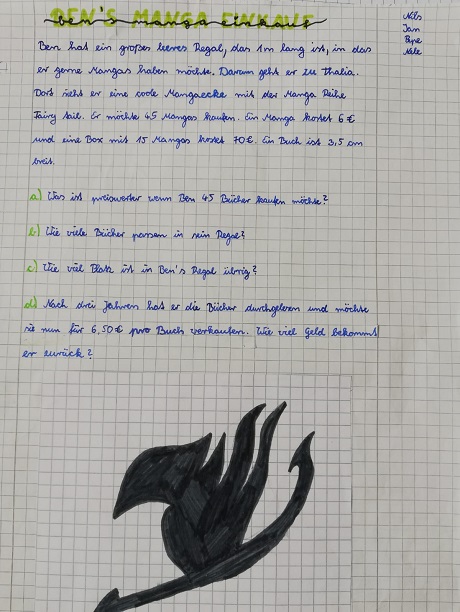 BEN'S MANGA EINKAUF
Ben's Manga einkauf
Nils
Jan
Nele
Ben hat ein großes leeres Regal, das 1m lang ist, in das
er gerne Mangas haben möchte. Darum geht er zu Thalia.
Dort sieht er eine coole Mangaecke mit der Manga Reihe
Fairy Tail. Er möchte 45 Mangas kaufen. Ein Manga kostet 6 €
und eine Box mit 15 Mangas kostet 70 €. Ein Buch ist 3,5 cm
breit.
a) Was ist preiswerter wenn Ben 45 Bücher kaufen möchte?
b) Wie viele Bücher passen in sein Regal?
c) Wie viel Platz ist in Ben's Regal übrig?
d) Nach drei Jahren hat er die Bücher durchgelesen und möchte
sie nun für 6,50 € pro Buch verkaufen. Wie viel Geld bekommt
er zurück?